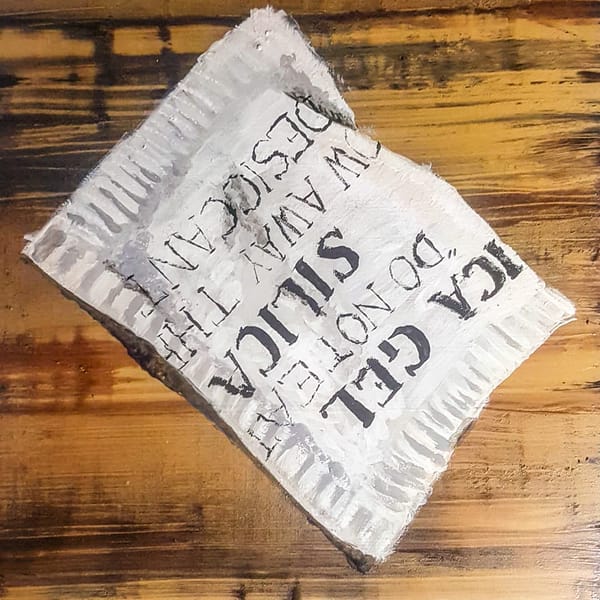 ICA GEL
"DO NOT EAT
SILICA
OW AWAY
DESICCANT